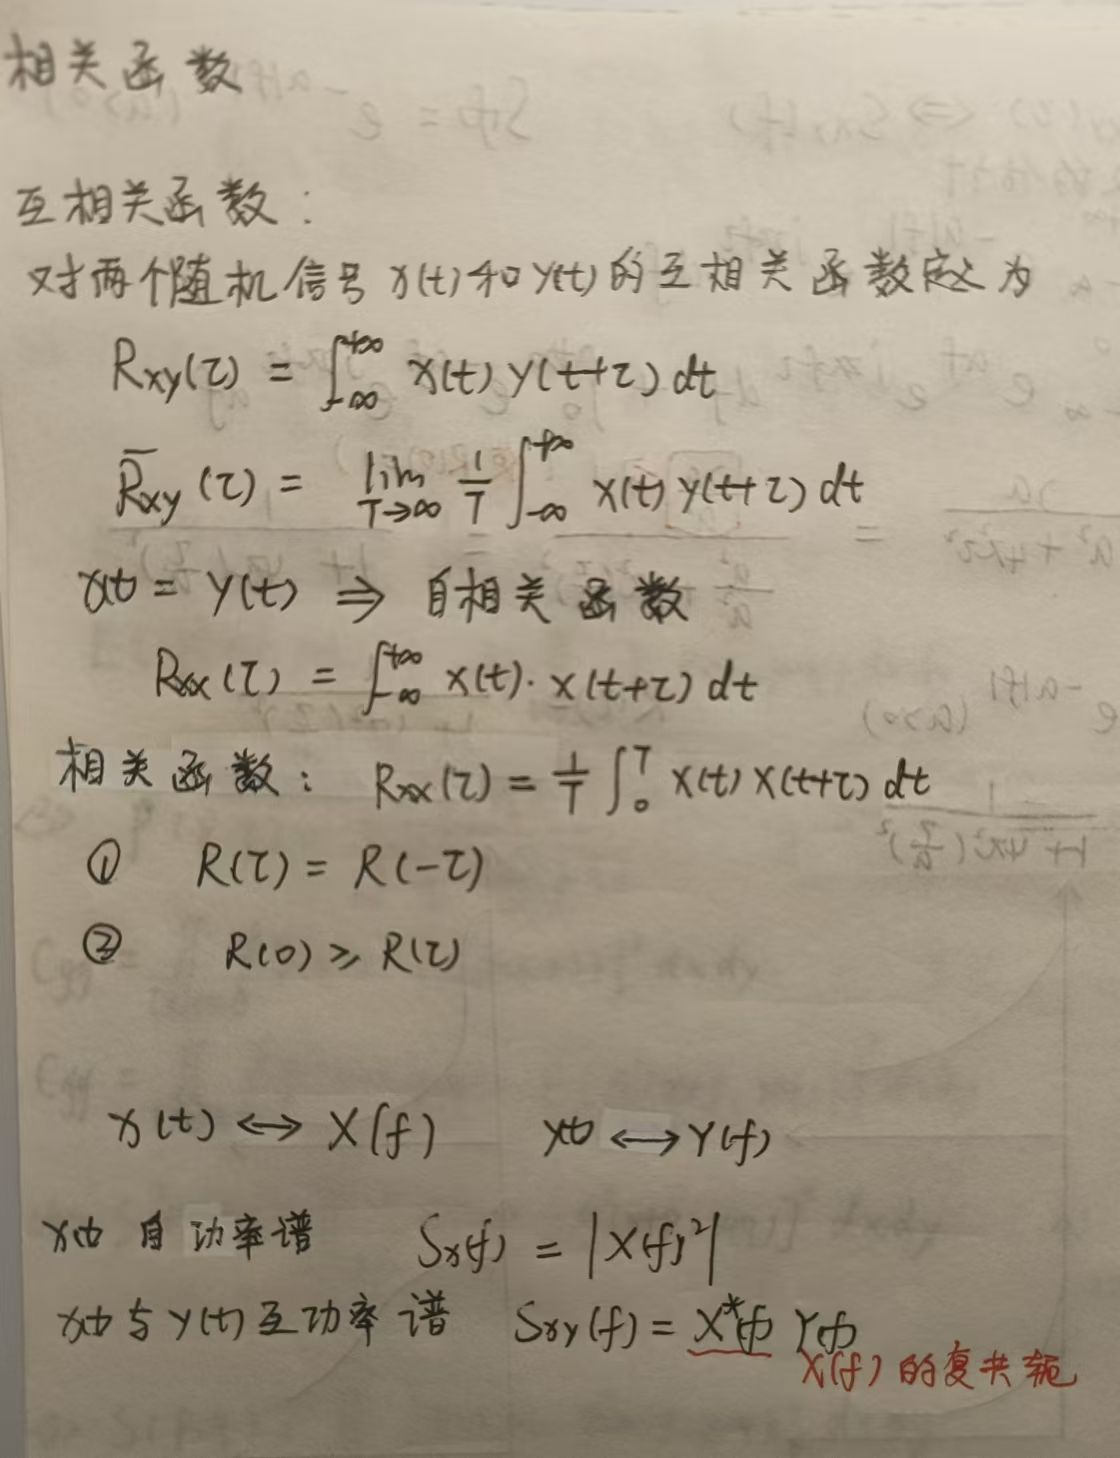 相关函数
互相关函数:
对两个随机信号 x(t) 和 y(t) 的互相关函数定义为
Rxy(τ) = ∫_{-∞}^{+∞} x(t) y(t+τ) dt
R̄xy(τ) = lim_{T→∞} 1/T ∫_{-∞}^{+∞} x(t) y(t+τ) dt
x(t) = y(t) ⇒ 自相关函数
Rxx(τ) = ∫_{-∞}^{+∞} x(t)·x(t+τ) dt
相关函数: Rxx(τ) = 1/T ∫_0^T x(t) x(t+τ) dt
① R(τ) = R(-τ)
② R(0) ≥ R(τ)
x(t) ↔ X(f) y(t) ↔ Y(f)
x(t) 自功率谱 Sx(f) = |X(f)²|
x(t) 与 y(t) 互功率谱 Sxy(f) = X*(f) Y(f)
X(f) 的复共轭